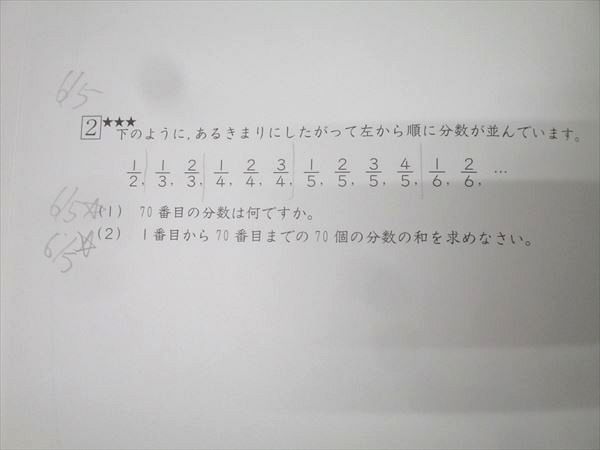 6/5
2 ★★★ 下のように,あるきまりにしたがって左から順に分数が並んでいます。
1/2, 1/3, 2/3, 1/4, 2/4, 3/4, 1/5, 2/5, 3/5, 4/5, 1/6, 2/6, …
6/5 ☆ (1) 70番目の分数は何ですか。
6/5 ☆ (2) 1番目から70番目までの70個の分数の和を求めなさい。